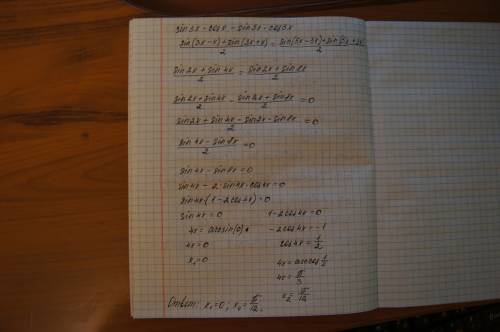 sin3x · cosx = sin3x · cos5x
sin(3x-x)+sin(3x+x)/2 = sin(5x-3x)+sin(5x+3x)/2
sin2x+sin4x/2 = sin2x+sin8x/2
sin2x+sin4x/2 - sin2x+sin8x/2 = 0
sin2x+sin4x-sin2x-sin8x/2 = 0
sin4x-sin8x/2 = 0
sin4x - sin8x = 0
sin4x - 2·sin4x·cos4x = 0
sin4x·(1-2cos4x) = 0
sin4x = 0 1-2cos4x = 0
4x = arcsin(0) -2cos4x = -1
4x = 0 cos4x = 1/2
x₁ = 0 4x = arccos 1/2
4x = π/3
x₂ = π/12
Ответ: x₁ = 0; x₂ = π/12.